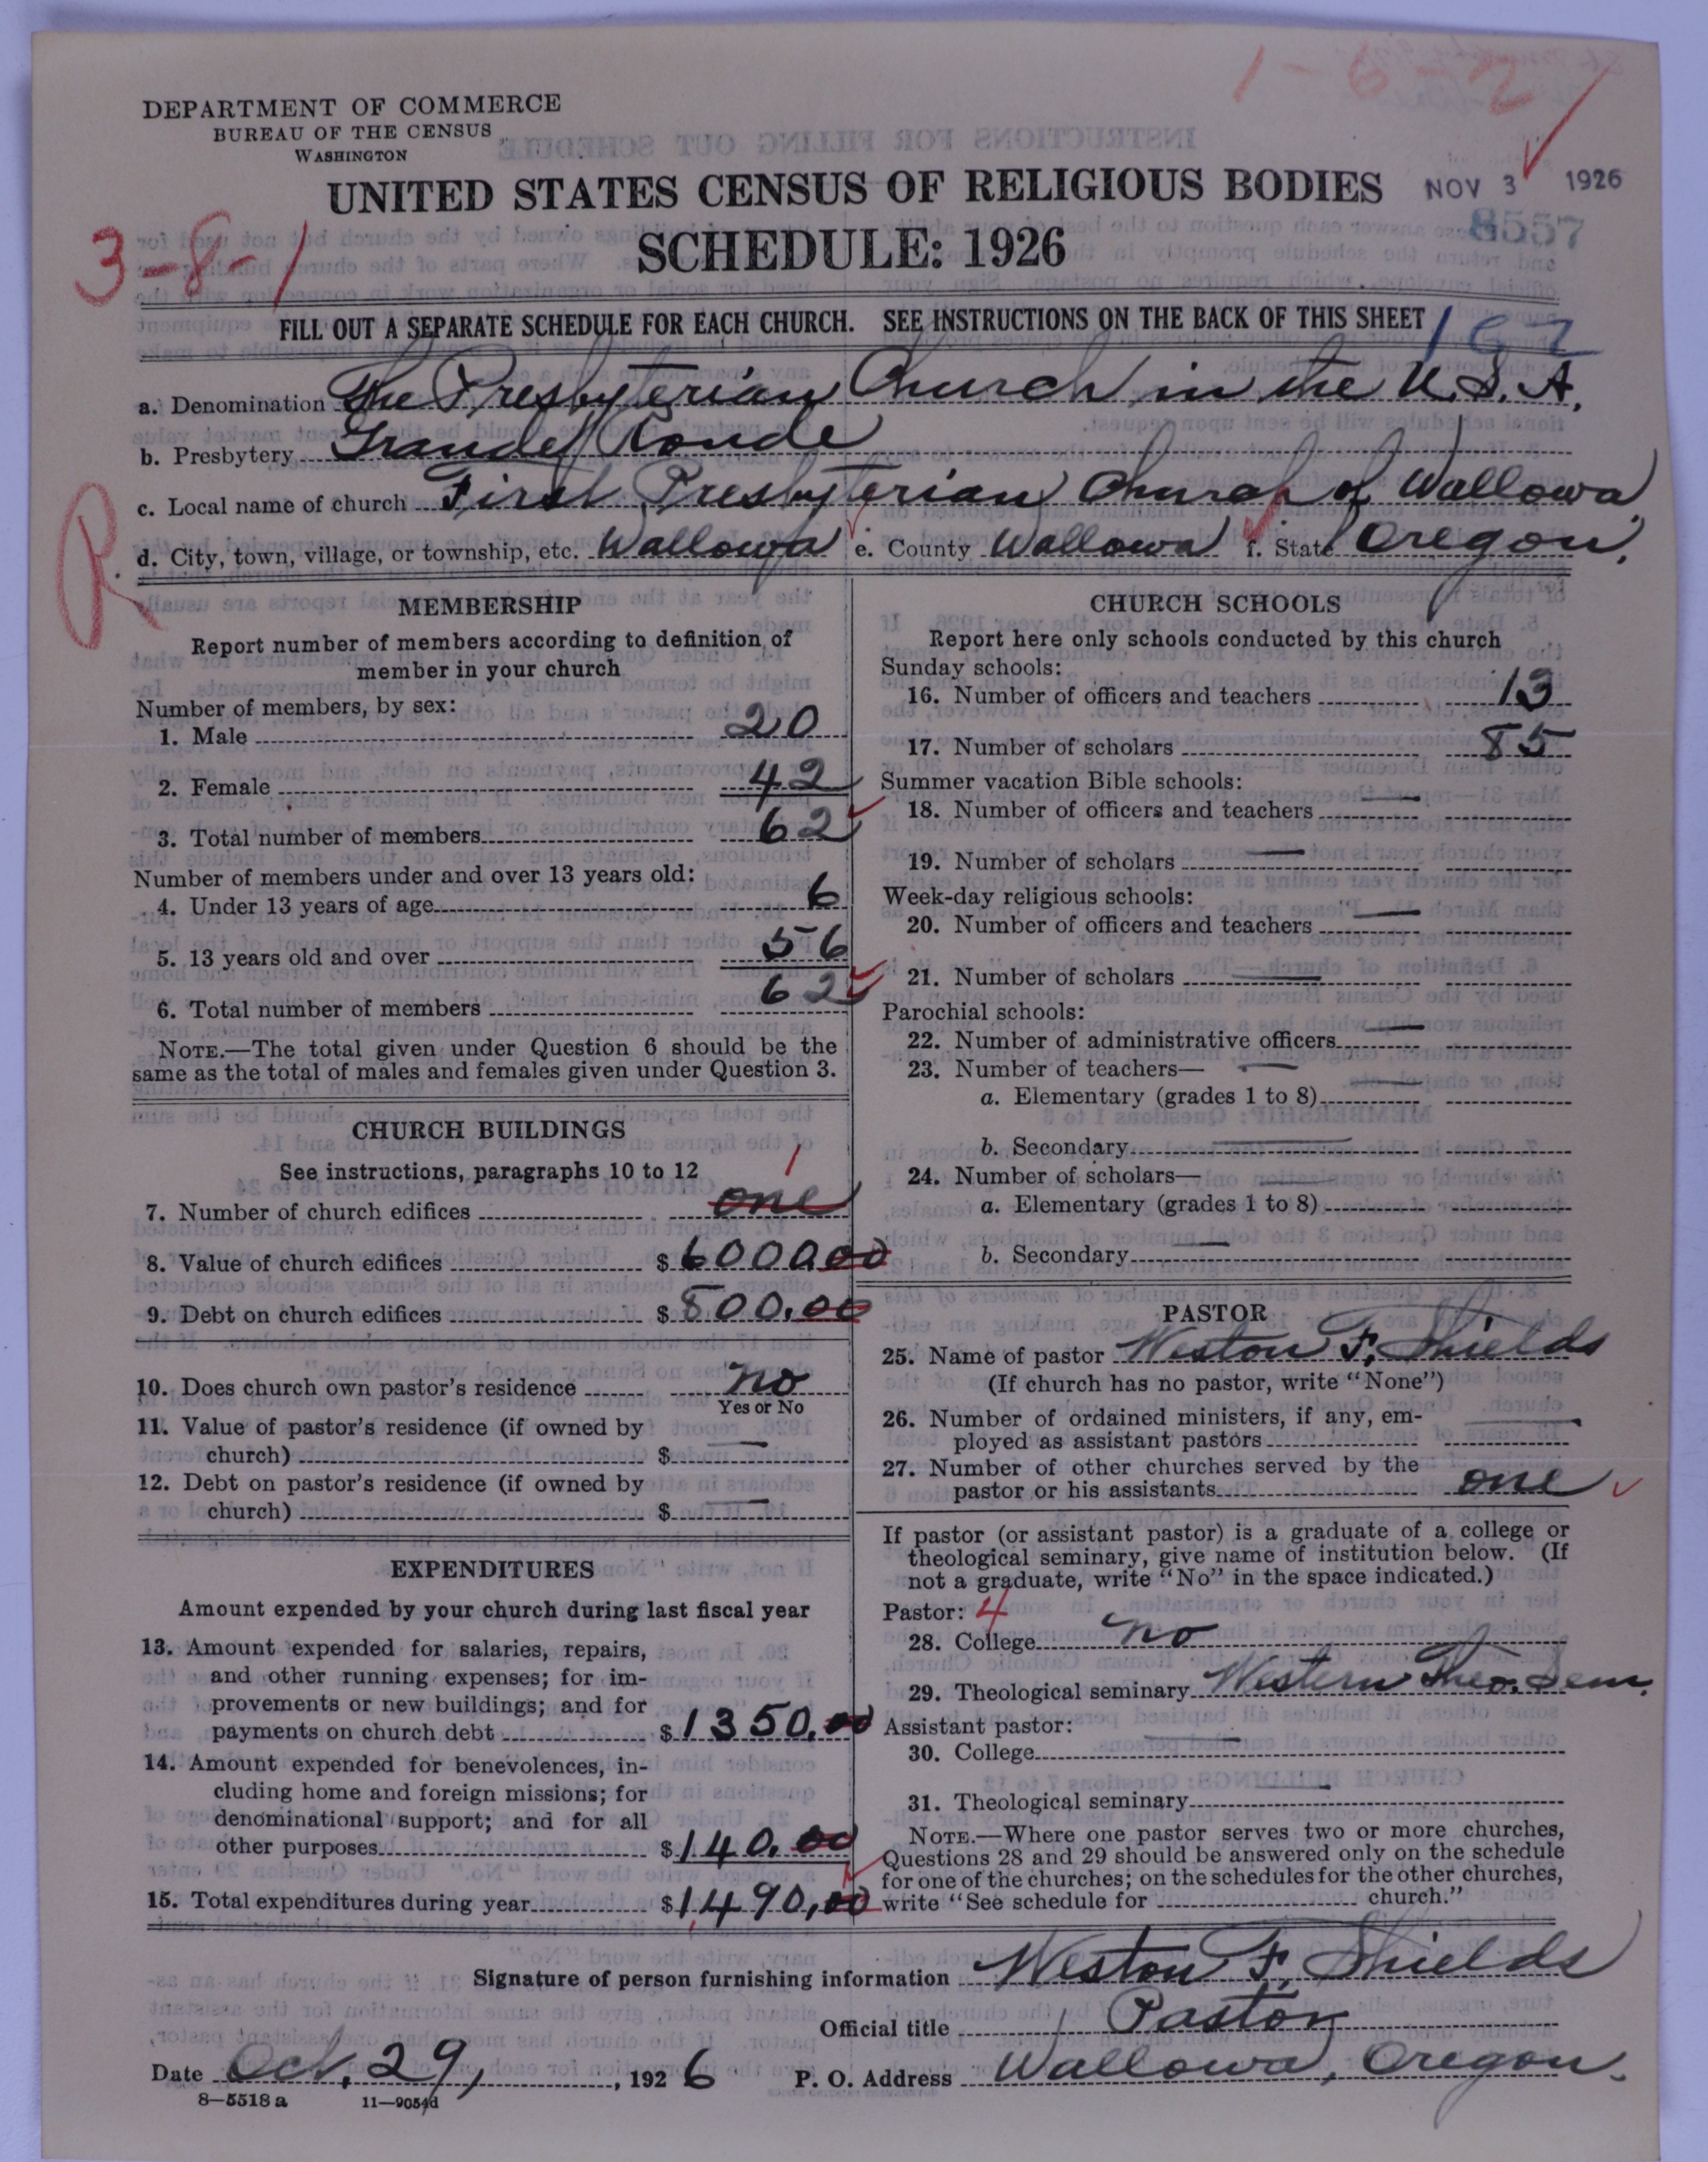 1-6-2
DEPARTMENT OF COMMERCE
BUREAU OF THE CENSUS
WASHINGTON
UNITED STATES CENSUS OF RELIGIOUS BODIES
NOV 3 1926
8557
3-8-1
SCHEDULE: 1926
FILL OUT A SEPARATE SCHEDULE FOR EACH CHURCH. SEE INSTRUCTIONS ON THE BACK OF THIS SHEET
a. Denomination The Presbyterian Church in the U.S.A.
b. Presbytery Grande Ronde
c. Local name of church First Presbyterian Church of Wallowa
d. City, town, village, or township, etc. Wallowa e. County Wallowa f. State Oregon.
R
MEMBERSHIP
Report number of members according to definition of
member in your church
Number of members, by sex:
1. Male 20
2. Female 42
3. Total number of members 62
Number of members under and over 13 years old:
4. Under 13 years of age 6
5. 13 years old and over 56
6. Total number of members 62
NOTE.—The total given under Question 6 should be the
same as the total of males and females given under Question 3.
CHURCH BUILDINGS
See instructions, paragraphs 10 to 12
1
7. Number of church edifices one
8. Value of church edifices $ 6000.00
9. Debt on church edifices $ 500.00
10. Does church own pastor's residence no
Yes or No
11. Value of pastor's residence (if owned by
church) $ —
12. Debt on pastor's residence (if owned by
church) $ —
EXPENDITURES
Amount expended by your church during last fiscal year
13. Amount expended for salaries, repairs,
and other running expenses; for im-
provements or new buildings; and for
payments on church debt $ 1350.00
14. Amount expended for benevolences, in-
cluding home and foreign missions; for
denominational support; and for all
other purposes $ 140.00
15. Total expenditures during year $ 1490.00
CHURCH SCHOOLS
Report here only schools conducted by this church
Sunday schools:
16. Number of officers and teachers 13
17. Number of scholars 85
Summer vacation Bible schools:
18. Number of officers and teachers —
19. Number of scholars —
Week-day religious schools:
20. Number of officers and teachers —
21. Number of scholars —
Parochial schools:
22. Number of administrative officers —
23. Number of teachers— —
a. Elementary (grades 1 to 8) —
b. Secondary —
24. Number of scholars— —
a. Elementary (grades 1 to 8)
b. Secondary —
PASTOR
25. Name of pastor Weston F. Shields
(If church has no pastor, write "None")
26. Number of ordained ministers, if any, em-
ployed as assistant pastors —
27. Number of other churches served by the
pastor or his assistants one
If pastor (or assistant pastor) is a graduate of a college or
theological seminary, give name of institution below. (If
not a graduate, write "No" in the space indicated.)
Pastor: 4
28. College no
29. Theological seminary Western Theo. Sem.
Assistant pastor:
30. College —
31. Theological seminary —
NOTE.—Where one pastor serves two or more churches,
Questions 28 and 29 should be answered only on the schedule
for one of the churches; on the schedules for the other churches,
write "See schedule for church."
Signature of person furnishing information Weston F. Shields
Official title Pastor
Date Oct. 29, 1926 P. O. Address Wallowa, Oregon.
8—5518 a 11—9054d